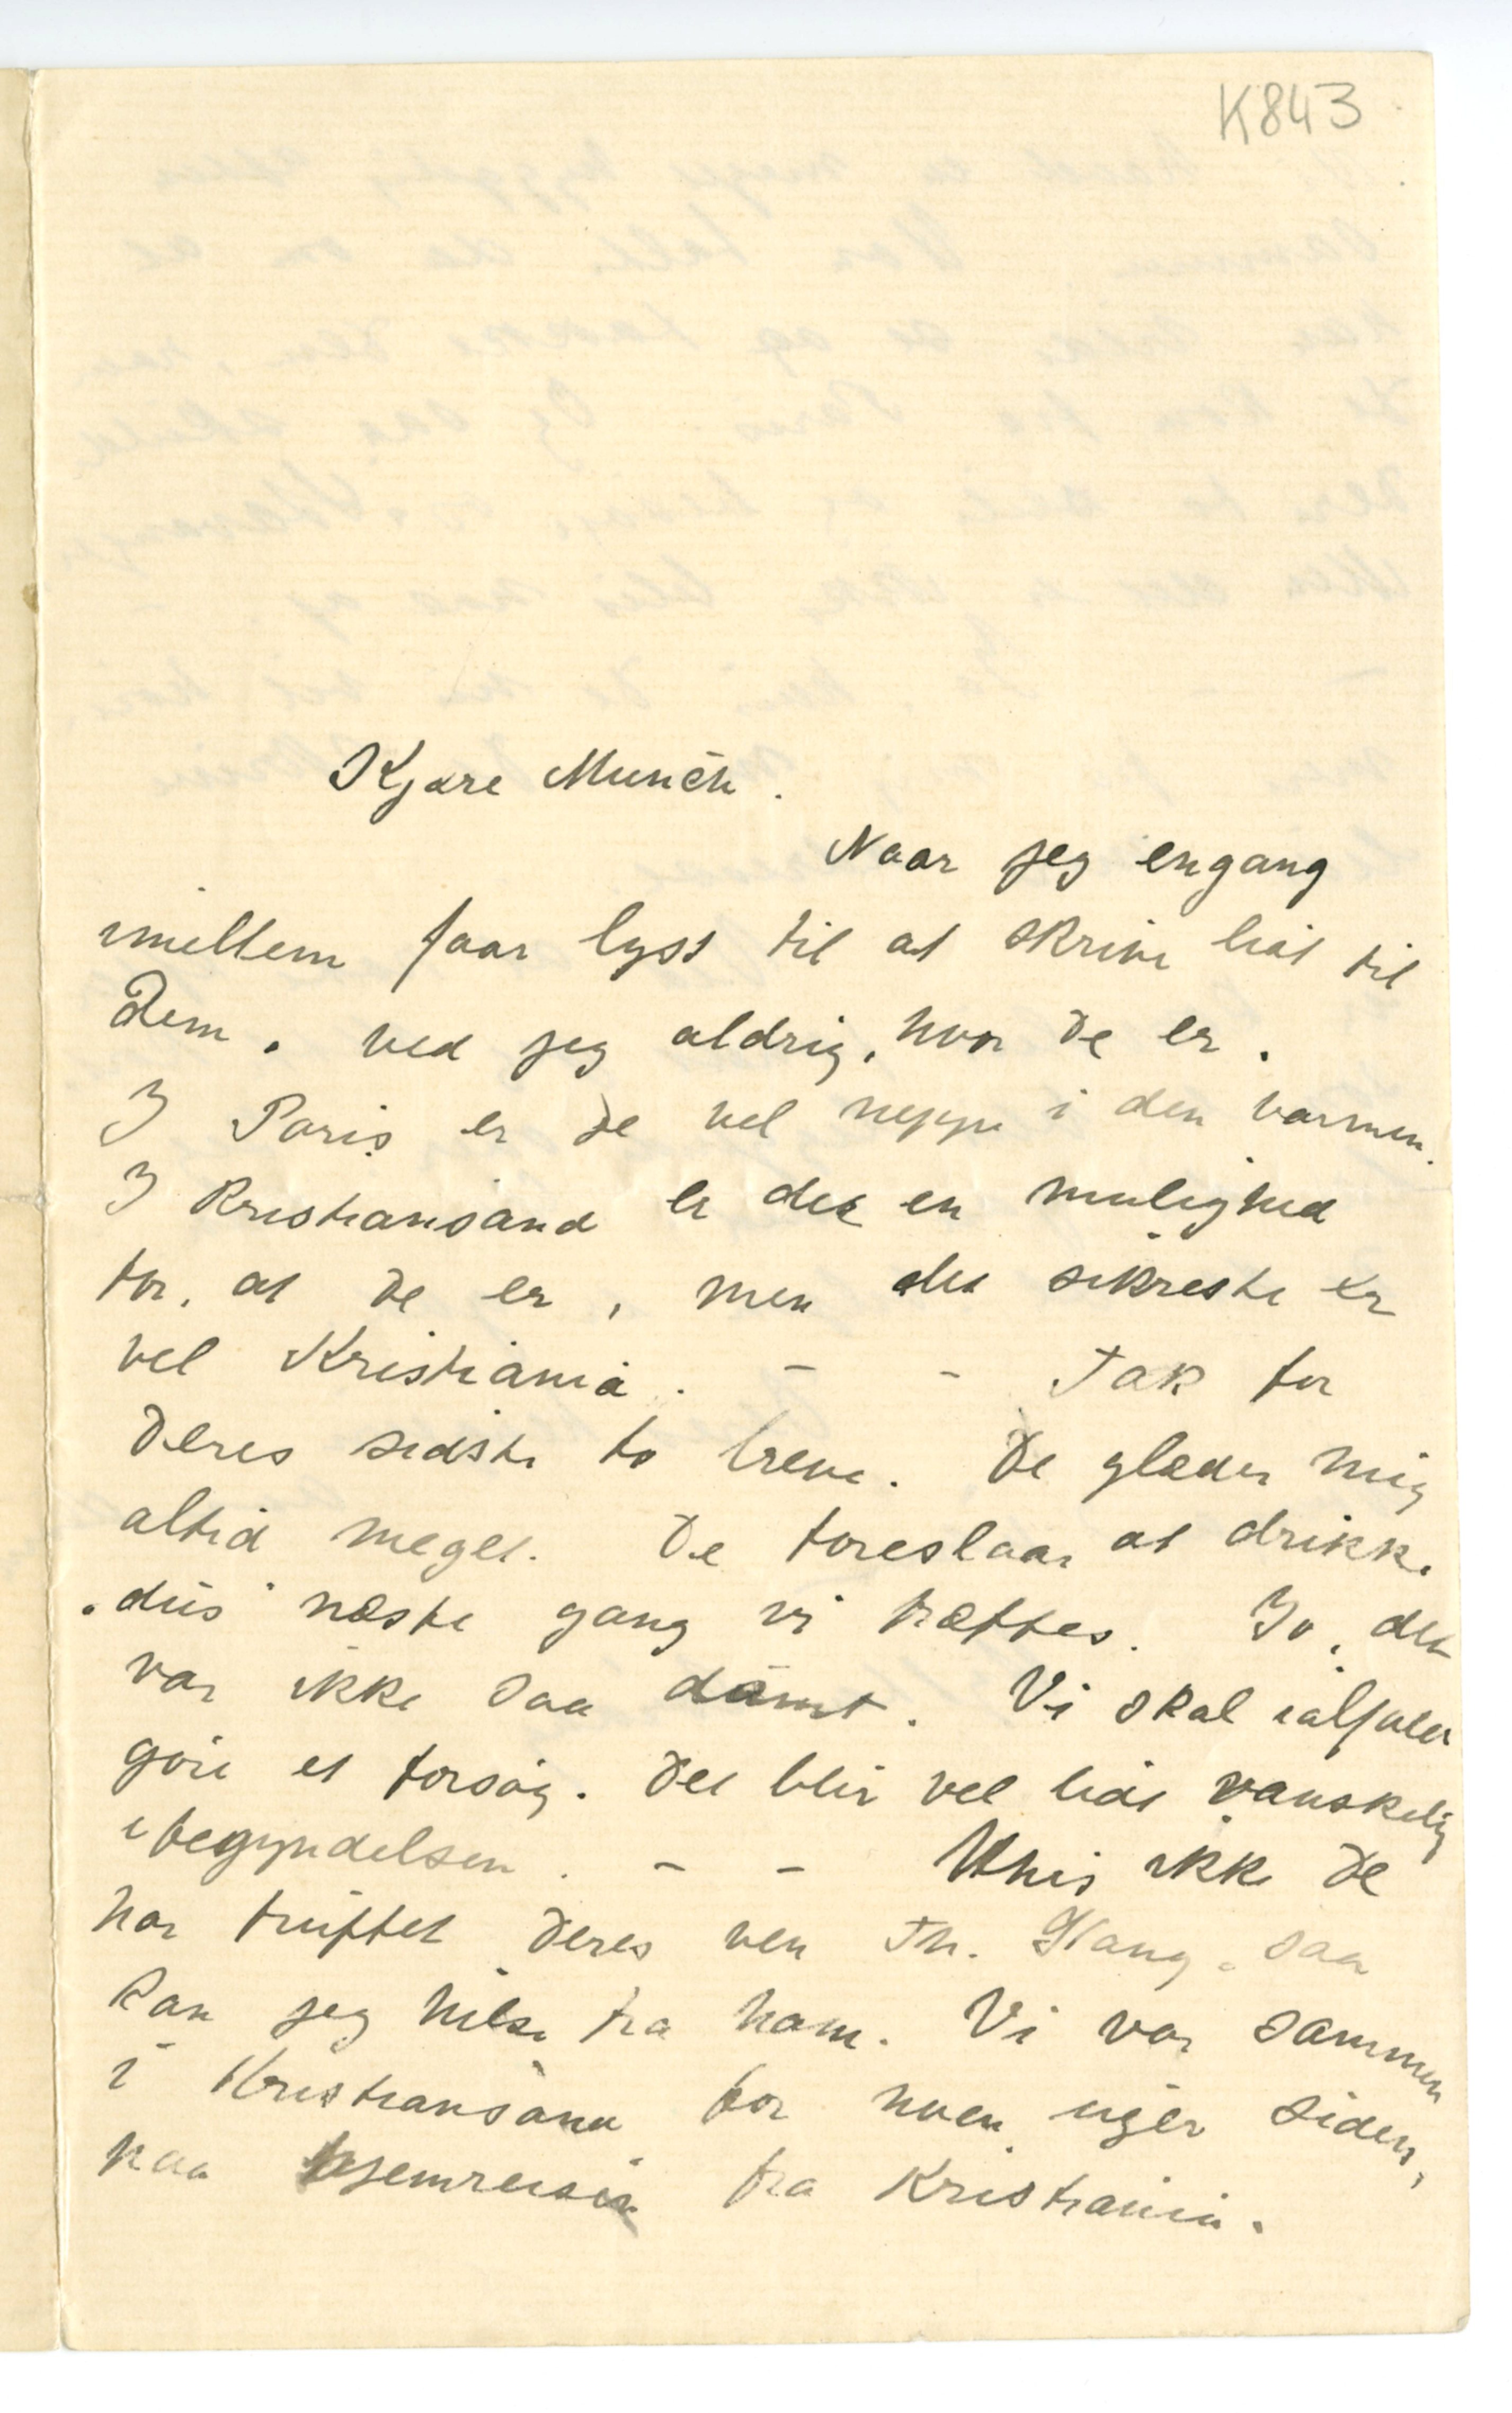 K843
Kjære Munch.
Naar jeg engang
imellem faar lyst til at skrive lidt til
Dem, ved jeg aldrig, hvor De er.
I Paris er De vel neppe i den varmen.
I Kristiansand er det en mulighed
for, at De er, men det sikreste er
vel Kristiania. – – Tak for
Deres sidste to breve. De glæder mig
altid meget. De foreslaar at drikke
„dus" næste gang vi træffes. Jo, det
var ikke saa dumt. Vi skal ialfald
gøre et forsøg. Det blir vel lidt vanskelig
i begyndelsen. – – Hvis ikke De
har truffet Deres ven Th. , saa
kan jeg hilse fra ham. Vi var sammen
i Kristiansand for noen uger siden,
paa hjemreisen fra Kristiania.